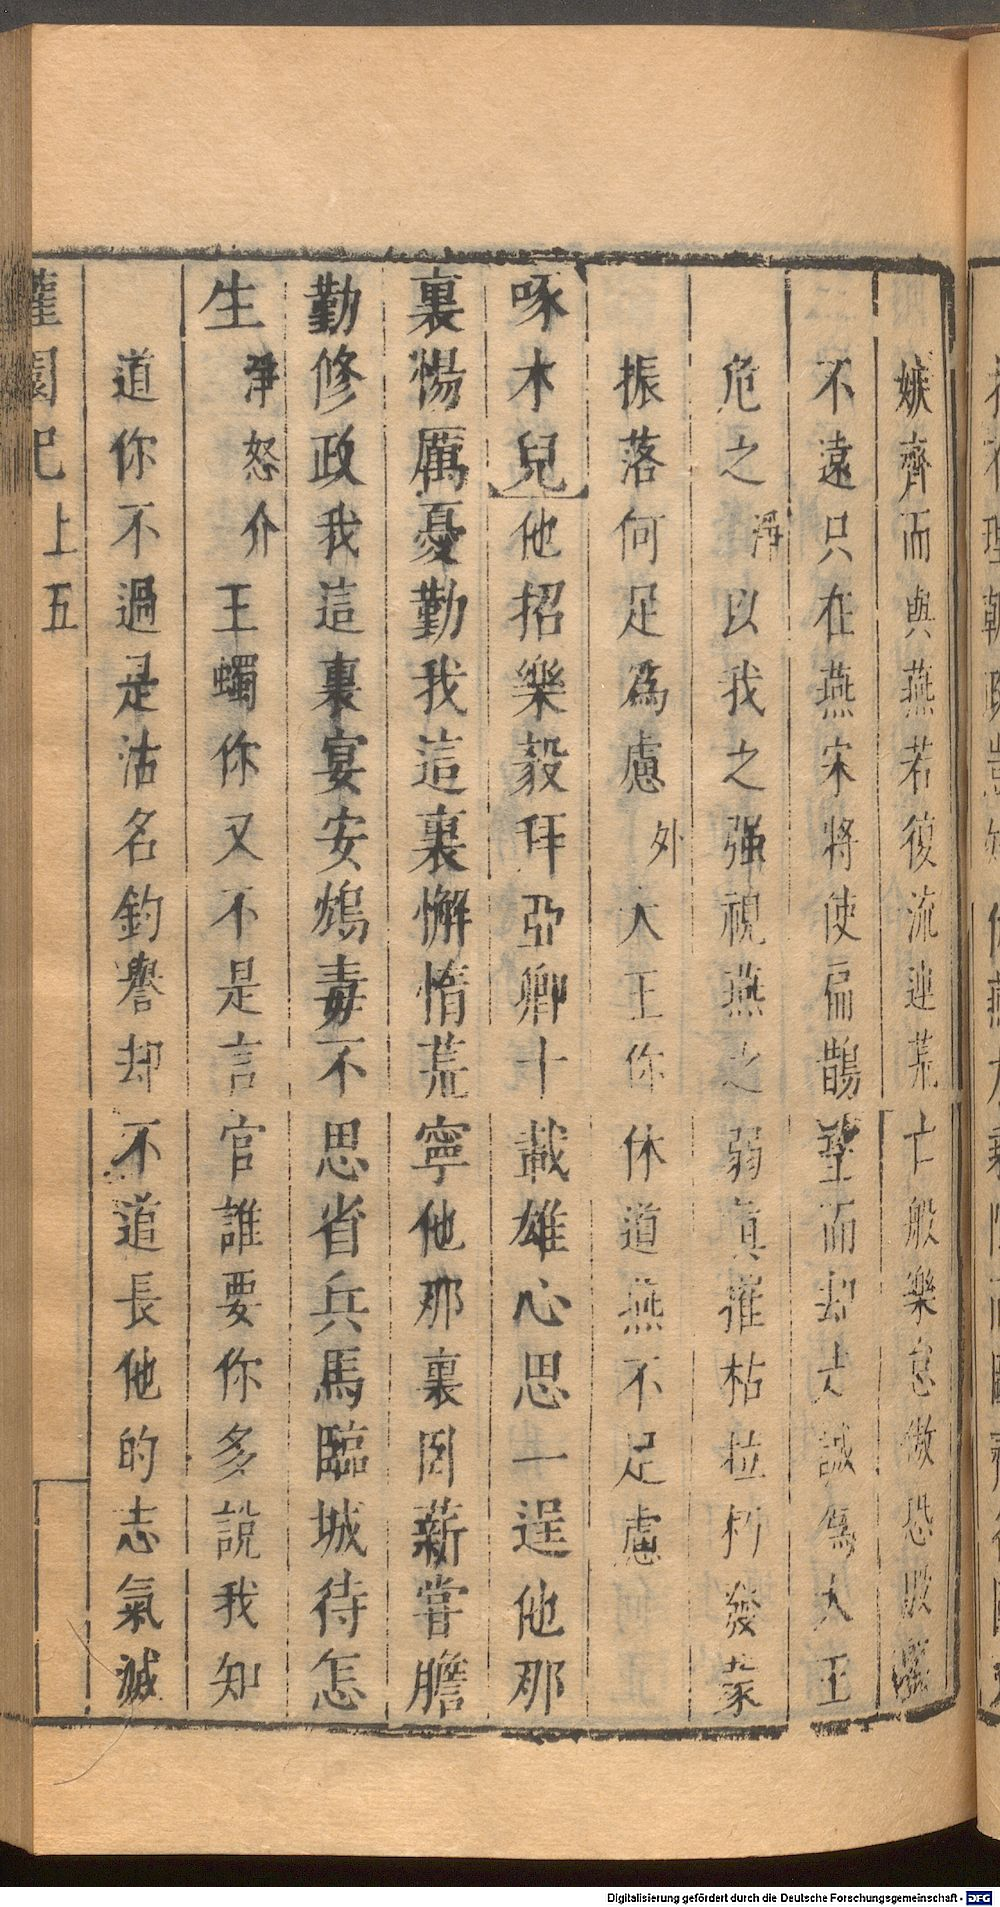 嫉齊而與燕若復流連荒亡般樂怠傲恐殷鑒
不遠只在燕宋將使扁鵲望而却走誠爲大王
危之淨以我之强視燕之弱眞摧枯拉朽發蒙
振落何足爲慮外大王你休道燕不足慮
啄木兒他招樂毅拜亞卿十載雄心思一逞他那
裏惕厲憂勤我這裏懈惰荒寧他那裏臥薪嘗膽
勤修政我這裏宴安鴆毒不思省兵馬臨城待怎
生淨怒介王蠋你又不是言官誰要你多說我知
道你不過是沽名釣譽却不道長他的志氣滅
灌園記 上 五
Digitalisierung gefördert durch die Deutsche Forschungsgemeinschaft - DFG